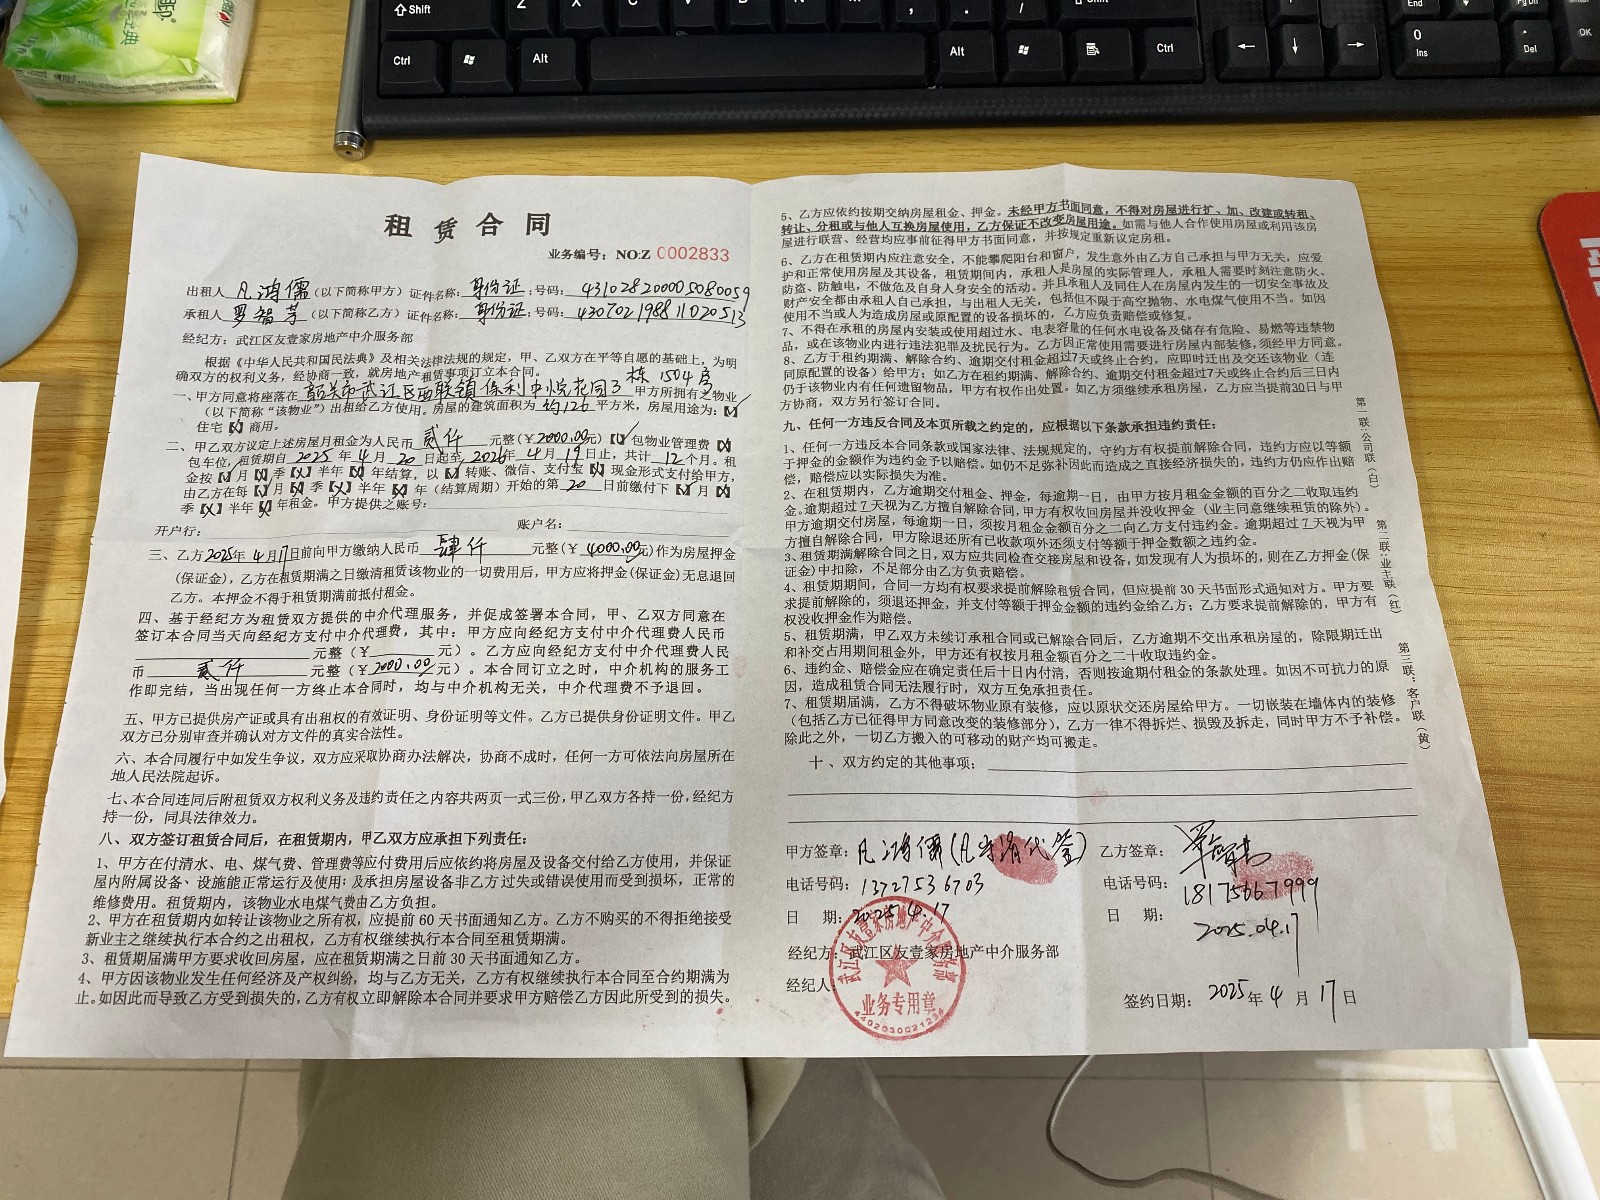 租赁合同
业务编号：NO:Z 0002833
出租人 凡鸿儒（以下简称甲方）证件名称：身份证；号码：431028200005080059
承租人 罗智芳（以下简称乙方）证件名称：身份证；号码：430702198811020513
经纪方：武江区友壹家房地产中介服务部
根据《中华人民共和国民法典》及相关法律法规的规定，甲、乙双方在平等自愿的基础上，为明
确双方的权利义务，经协商一致，就房地产租赁事项订立本合同。
一、甲方同意将座落在 韶关市武江区西联镇保利中悦花园3栋1504房 甲方所拥有之物业
（以下简称“该物业”）出租给乙方使用。房屋的建筑面积为 约126 平方米，房屋用途为：【】
住宅【】商用。
二、甲乙双方议定上述房屋月租金为人民币 贰仟 元整（￥2000.00元）【】包物业管理费【】
包车位，租赁期自2025年4月20日起至2026年4月19日止，共计12个月。租
金按【】月【】季【】半年【】年结算，以【】转账、微信、支付宝【】现金形式支付给甲方，
由乙方在每【】月【】季【】半年【】年（结算周期）开始的第 20 日前缴付下【】月【】
季【】半年【】年租金。甲方提供之账号：
开户行： 账户名：
三、乙方2025年4月17日前向甲方缴纳人民币 肆仟 元整（￥4000.00元）作为房屋押金
（保证金），乙方在租赁期满之日缴清租赁该物业的一切费用后，甲方应将押金（保证金）无息退回
乙方。本押金不得于租赁期满前抵付租金。
四、基于经纪方为租赁双方提供的中介代理服务，并促成签署本合同，甲、乙双方同意在
签订本合同当天向经纪方支付中介代理费，其中：甲方应向经纪方支付中介代理费人民币
元整（￥ 元）。乙方应向经纪方支付中介代理费人民
币 贰仟 元整（￥2000.00元）。本合同订立之时，中介机构的服务工
作即完结，当出现任何一方终止本合同时，均与中介机构无关，中介代理费不予退回。
五、甲方已提供房产证或具有出租权的有效证明、身份证明等文件。乙方已提供身份证明文件。甲乙
双方已分别审查并确认对方文件的真实合法性。
六、本合同履行中如发生争议，双方应采取协商办法解决，协商不成时，任何一方可依法向房屋所在
地人民法院起诉。
七、本合同连同后附租赁双方权利义务及违约责任之内容共两页一式三份，甲乙双方各持一份，经纪方
持一份，同具法律效力。
八、双方签订租赁合同后，在租赁期内，甲乙双方应承担下列责任：
1、甲方在付清水、电、煤气费、管理费等应付费用后应依约将房屋及设备交付给乙方使用，并保证
屋内附属设备、设施能正常运行及使用；及承担房屋设备非乙方过失或错误使用而受到损坏，正常的
维修费用。租赁期内，该物业水电煤气费由乙方负担。
2、甲方在租赁期内如转让该物业之所有权，应提前60天书面通知乙方。乙方不购买的不得拒绝接受
新业主之继续执行本合约之出租权，乙方有权继续执行本合同至租赁期满。
3、租赁期届满甲方要求收回房屋，应在租赁期满之日前30天书面通知乙方。
4、甲方因该物业发生任何经济及产权纠纷，均与乙方无关，乙方有权继续执行本合同至合约期满为
止。如因此而导致乙方受到损失的，乙方有权立即解除本合同并要求甲方赔偿乙方因此所受到的损失。
5、乙方应依约按期交纳房屋租金、押金。未经甲方书面同意，不得对房屋进行扩、加、改建或转租、
转让、分租或与他人互换房屋使用，乙方保证不改变房屋用途。如需与他人合作使用房屋或利用该房
屋进行联营、经营均应事前征得甲方书面同意，并按规定重新议定房租。
6、乙方在租赁期内应注意安全，不能攀爬阳台和窗户，发生意外由乙方自己承担与甲方无关，应爱
护和正常使用房屋及其设备，租赁期间内，承租人是房屋的实际管理人，承租人需要时刻注意防火、
防盗、防触电，不做危及自身人身安全的活动。并且承租人及同住人在房屋内发生的一切安全事故及
财产安全都由承租人自己承担，与出租人无关，包括但不限于高空抛物、水电煤气使用不当。如因
使用不当或人为造成房屋或原配置的设备损坏的，乙方应负责赔偿或修复。
7、不得在承租的房屋内安装或使用超过水、电表容量的任何水电设备及储存有危险、易燃等违禁物
品，或在该物业内进行违法犯罪及扰民行为。乙方因正常使用需要进行房屋内部装修，须经甲方同意。
8、乙方于租约期满、解除合约、逾期交付租金超过7天或终止合约，应即时迁出及交还该物业（连
同原配置的设备）给甲方；如乙方在租约期满、解除合约、逾期交付租金超过7天或终止合约后三日内
仍于该物业内有任何遗留物品，甲方有权作出处置。如乙方须继续承租房屋，乙方应当提前30日与甲
方协商，双方另行签订合同。
九、任何一方违反合同及本页所载之约定的，应根据以下条款承担违约责任：
1、任何一方违反本合同条款或国家法律、法规规定的，守约方有权提前解除合同，违约方应以等额
于押金的金额作为违约金予以赔偿。如仍不足弥补因此而造成之直接经济损失的，违约方仍应作出赔
偿，赔偿应以实际损失为准。
2、在租赁期内，乙方逾期交付租金、押金，每逾期一日，由甲方按月租金金额的百分之二收取违约
金。逾期超过7天视为乙方擅自解除合同，甲方有权收回房屋并没收押金（业主同意继续租赁的除外）。
甲方逾期交付房屋，每逾期一日，须按月租金金额百分之二向乙方支付违约金。逾期超过7天视为甲
方擅自解除合同，甲方除退还所有已收款项外还须支付等额于押金数额之违约金。
3、租赁期满解除合同之日，双方应共同检查交接房屋和设备，如发现有人为损坏的，则在乙方押金（保
证金）中扣除，不足部分由乙方负责赔偿。
4、租赁期期间，合同一方均有权要求提前解除租赁合同，但应提前30天书面形式通知对方。甲方要
求提前解除的，须退还押金，并支付等额于押金金额的违约金给乙方；乙方要求提前解除的，甲方有
权没收押金作为赔偿。
5、租赁期满，甲乙双方未续订承租合同或已解除合同后，乙方逾期不交出承租房屋的，除限期迁出
和补交占用期间租金外，甲方还有权按月租金额百分之二十收取违约金。
6、违约金、赔偿金应在确定责任后十日内付清，否则按逾期付租金的条款处理。如因不可抗力的原
因，造成租赁合同无法履行时，双方互免承担责任。
7、租赁期届满，乙方不得破坏物业原有装修，应以原状交还房屋给甲方。一切嵌装在墙体内的装修
（包括乙方已征得甲方同意改变的装修部分），乙方一律不得拆烂、损毁及拆走，同时甲方不予补偿。
除此之外，一切乙方搬入的可移动的财产均可搬走。
十、双方约定的其他事项：
甲方签章：凡鸿儒（代签） 乙方签章：
电话号码：13727536703 电话号码：18175667999
日 期：2025.4.17 日 期：2025.04.17
经纪方：武江区友壹家房地产中介服务部
经纪人：
签约日期：2025年4月17日
武江区友壹家房地产中介服务部
业务专用章
第一联：公司联（白）
第二联：业主联（红）
第三联：客户联（黄）
Shift
Z X C V B N M , . /
Shift
Ctrl
Alt
Alt
Ctrl
End
PgDn
0
Ins
.
Del
OK